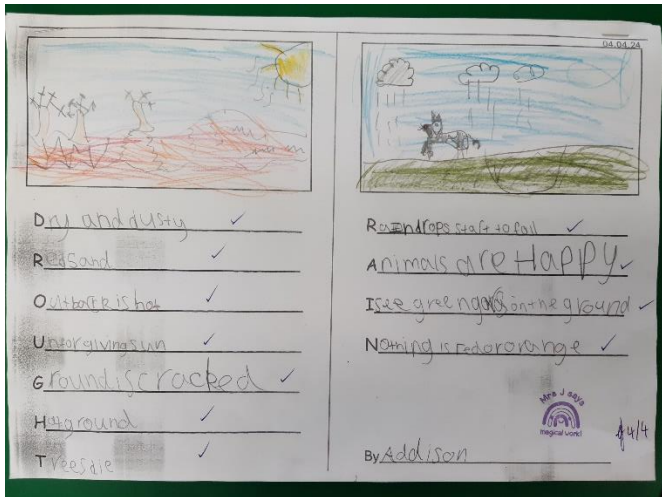 04.04.24
Dry and dusty
Red sand
Outback is hot
Unforgiving sun
Ground is cracked
Hot ground
Trees die
Raindrops start to fall
Animals are Happy
I see green grass on the ground
Nothing is red or orange
Mrs J says
magical work!
4/4
By Addison